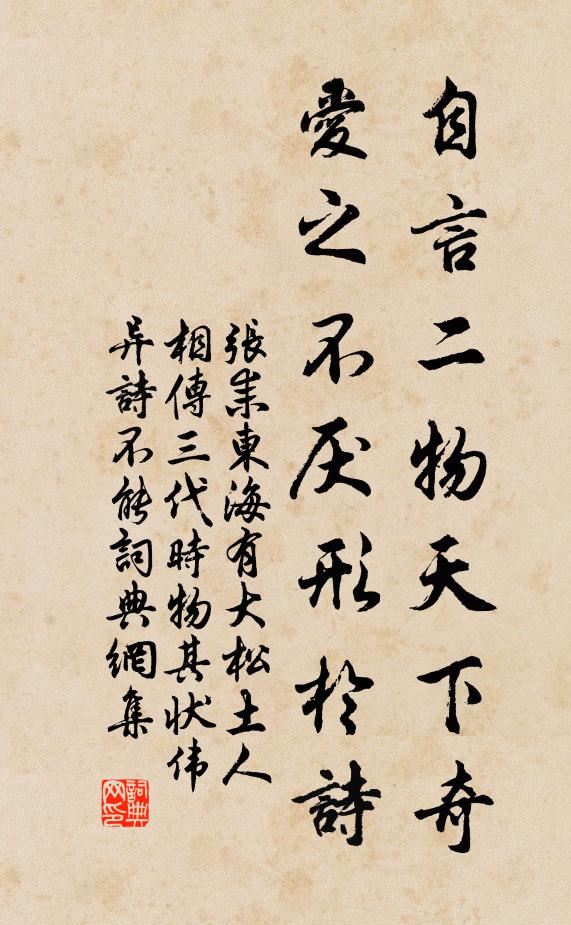 自言二物天下奇
愛之不厌形於詩
張耒東海有大松土人
相傳三代時物其状伟
异詩不能詞典網集
詞典
网印